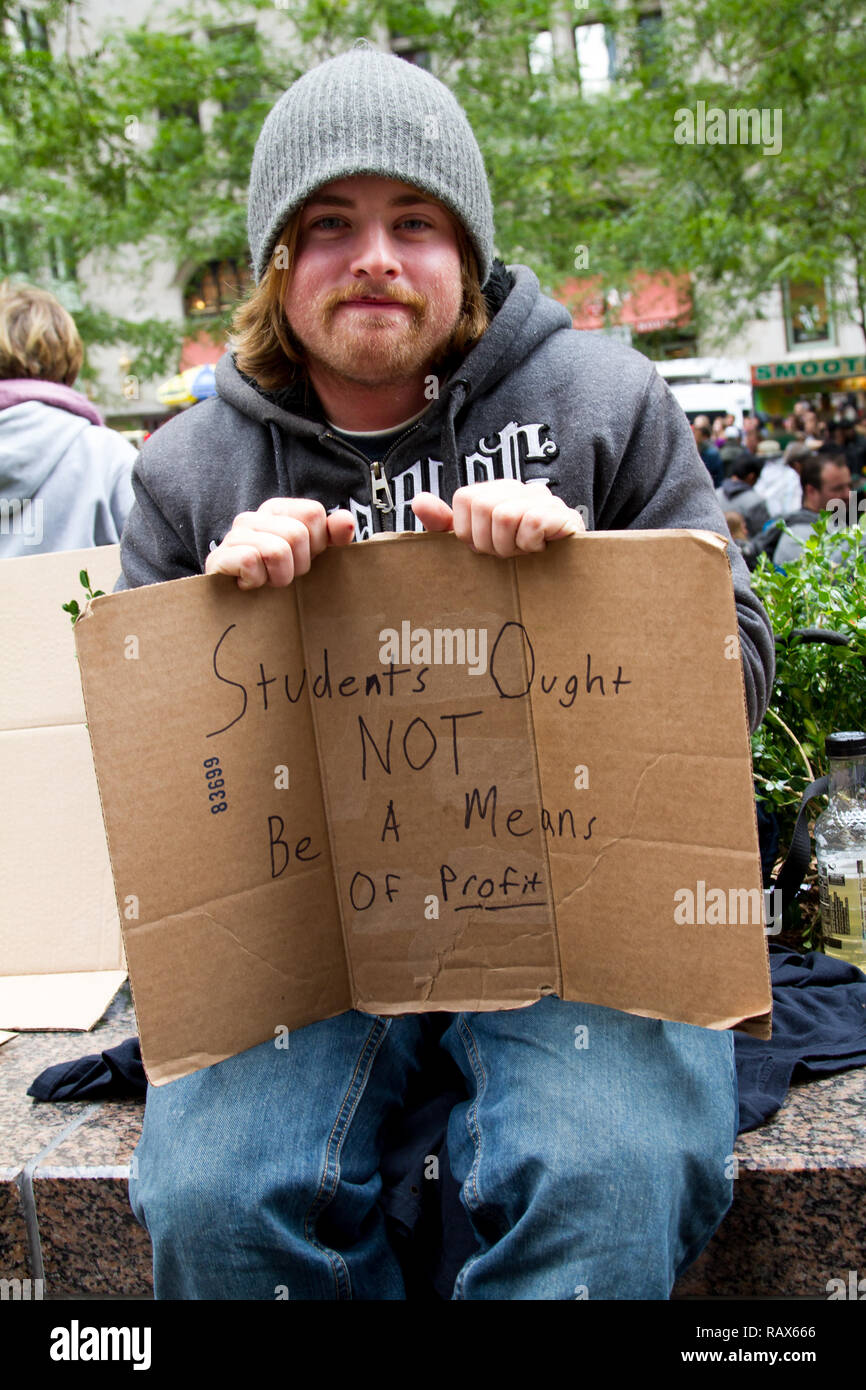 SMOOT
Students Ought
NOT
Be A Means
Of Profit
83699
alamy
Image ID: RAX666
www.alamy.com